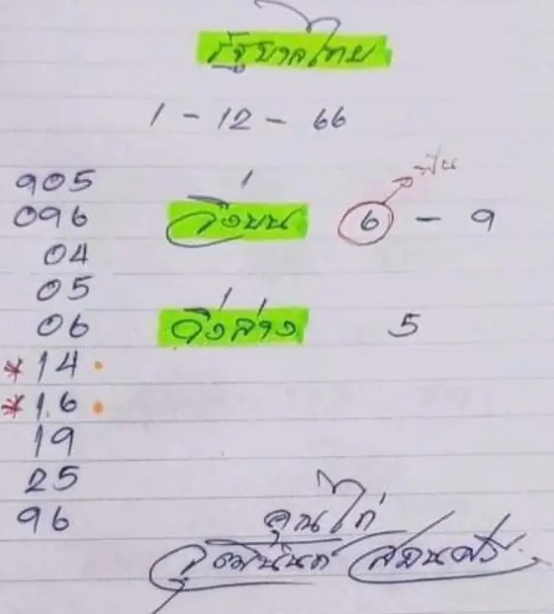 รัฐบาลไทย
1 - 12 - 66
905
096
04
05
06
*14
*16
19
25
96
วิ่งบน 6 - 9
ฟัน
วิ่งล่าง 5
คุณไก่